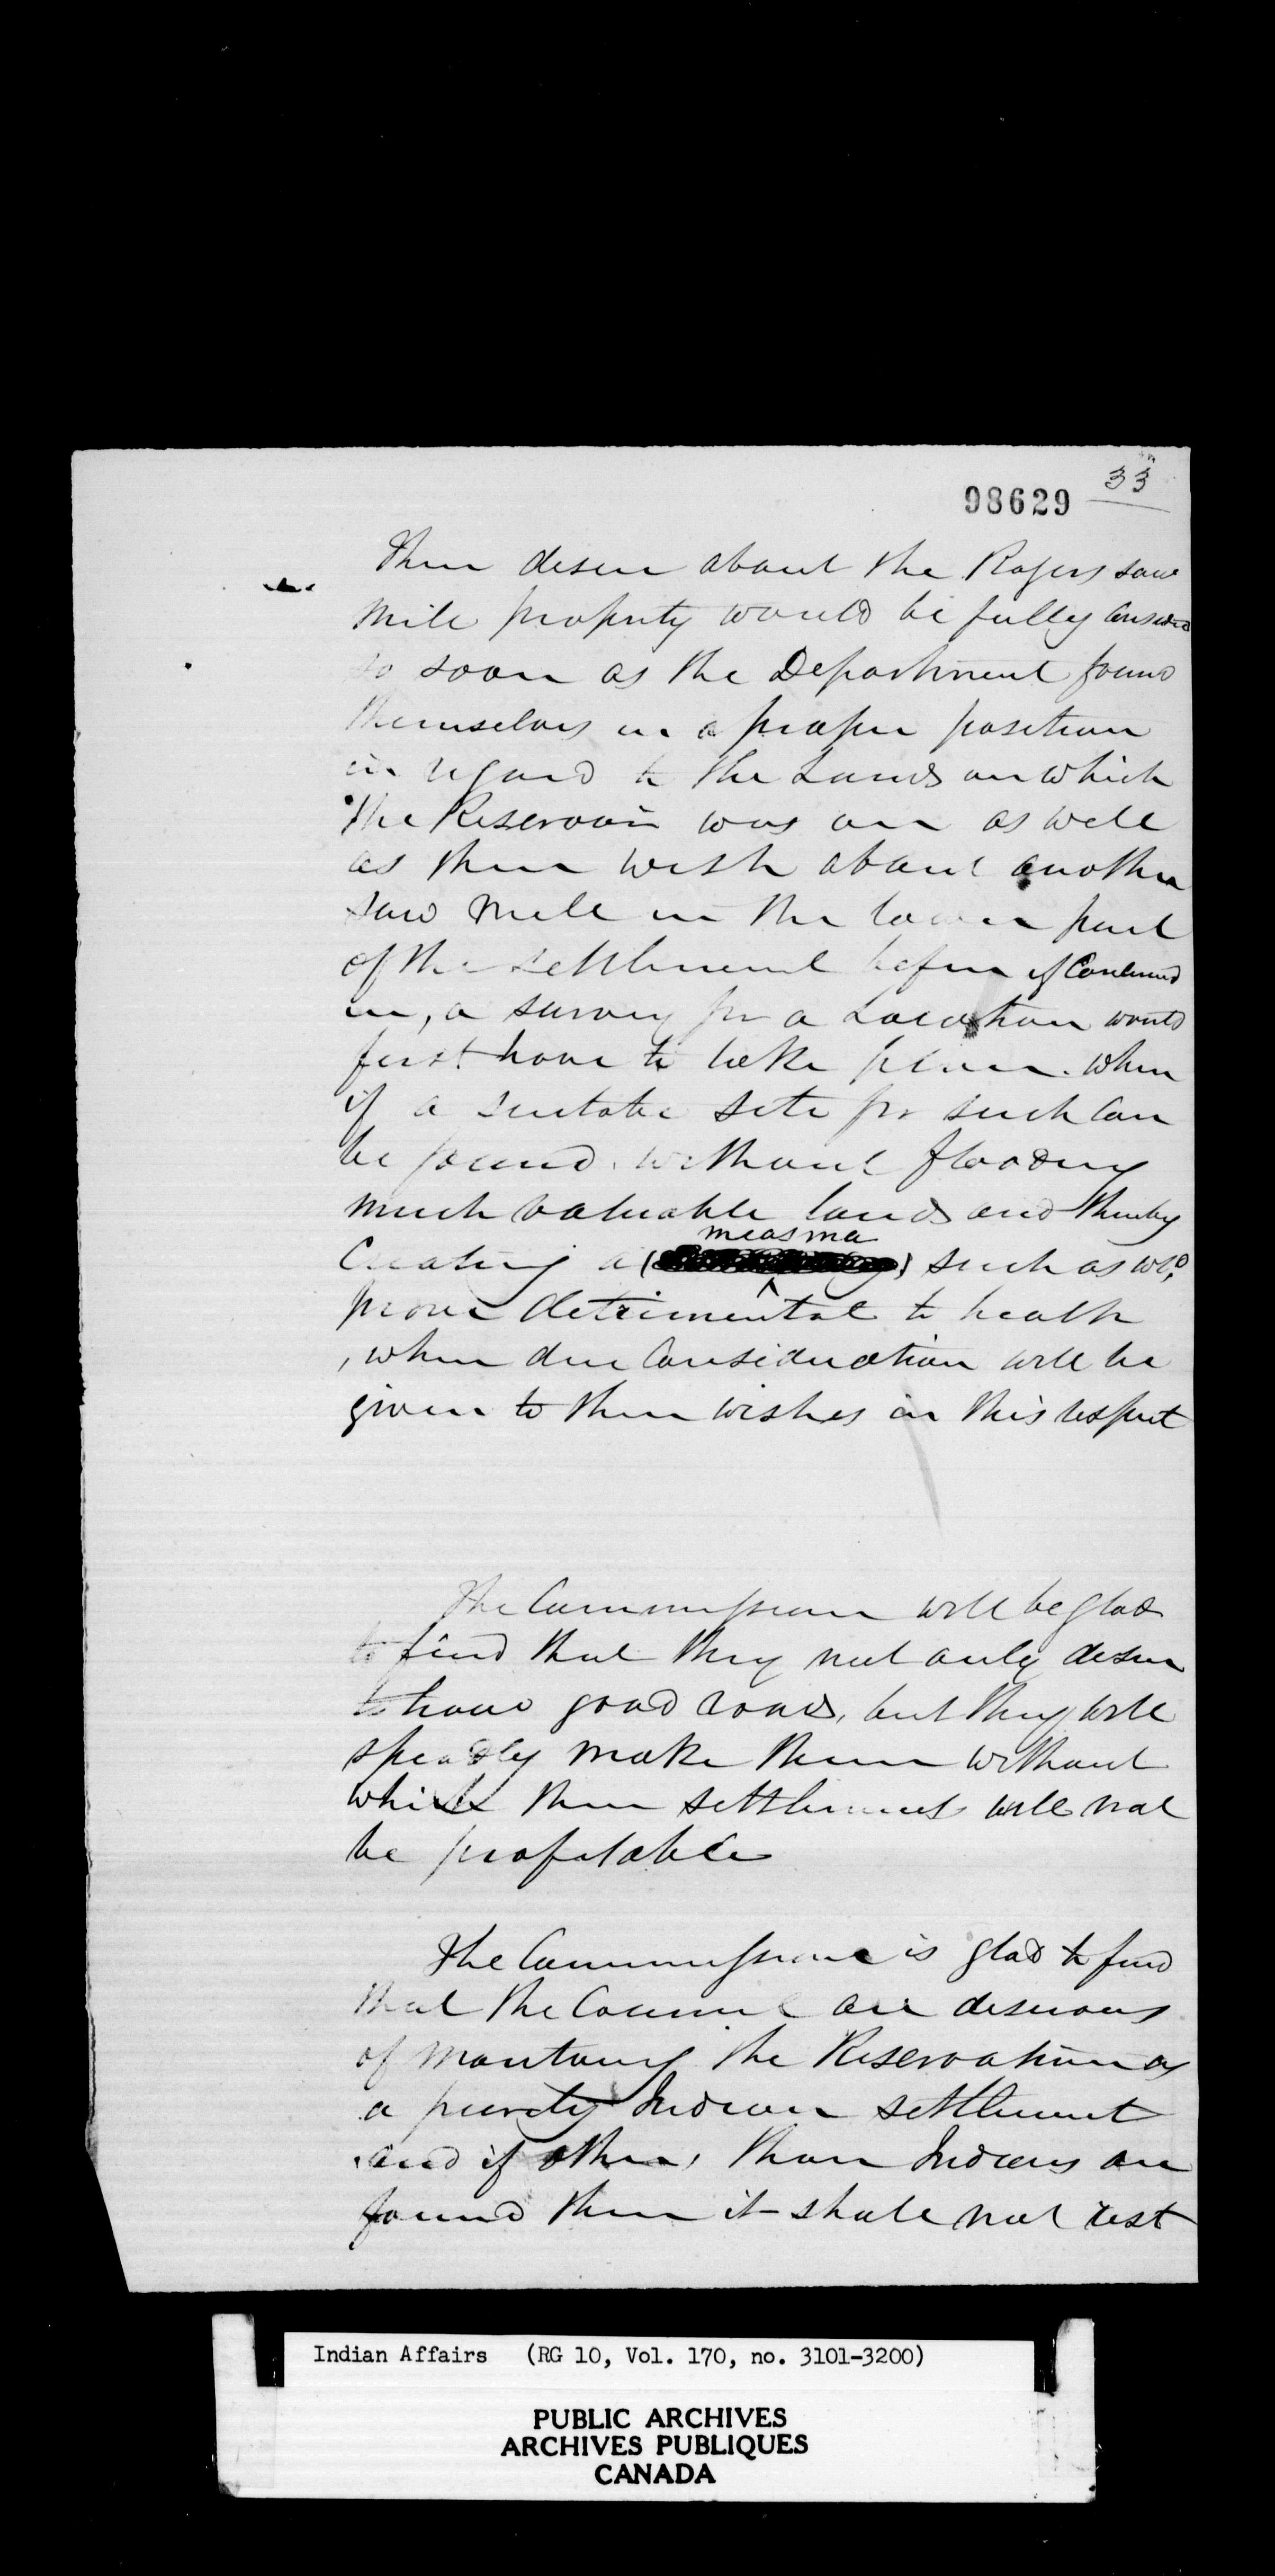 33
98629
Their desire about the Rogers saw
mill property would be fully considered
so soon as the Department found
themselves in a proper position
in regard to the Lands on which
the Reservoir was on as well
as their wish about another
saw mill in the lower part
of the settlement before
in, a survey for a Location would
first have to take place. when
if a suitable site for such can
be found. without flooding
much valuable lands and thereby
Creating a (miasma) such as wld
prove detrimental to health
, when due Consideration will be
given to their wishes in this respect
The Commissioner will be glad
to find that they not only desire
to have good roads, but they will
speedily make them without
which their settlement will not
be profitable
The Commissioner is glad to find
that the Council are desirous
of the Reservation as
a purely Indian settlement
and if others than Indians are
found there it shall not rest
Indian Affairs (RG 10, Vol. 170, no. 3101-3200)
PUBLIC ARCHIVES
ARCHIVES PUBLIQUES
CANADA